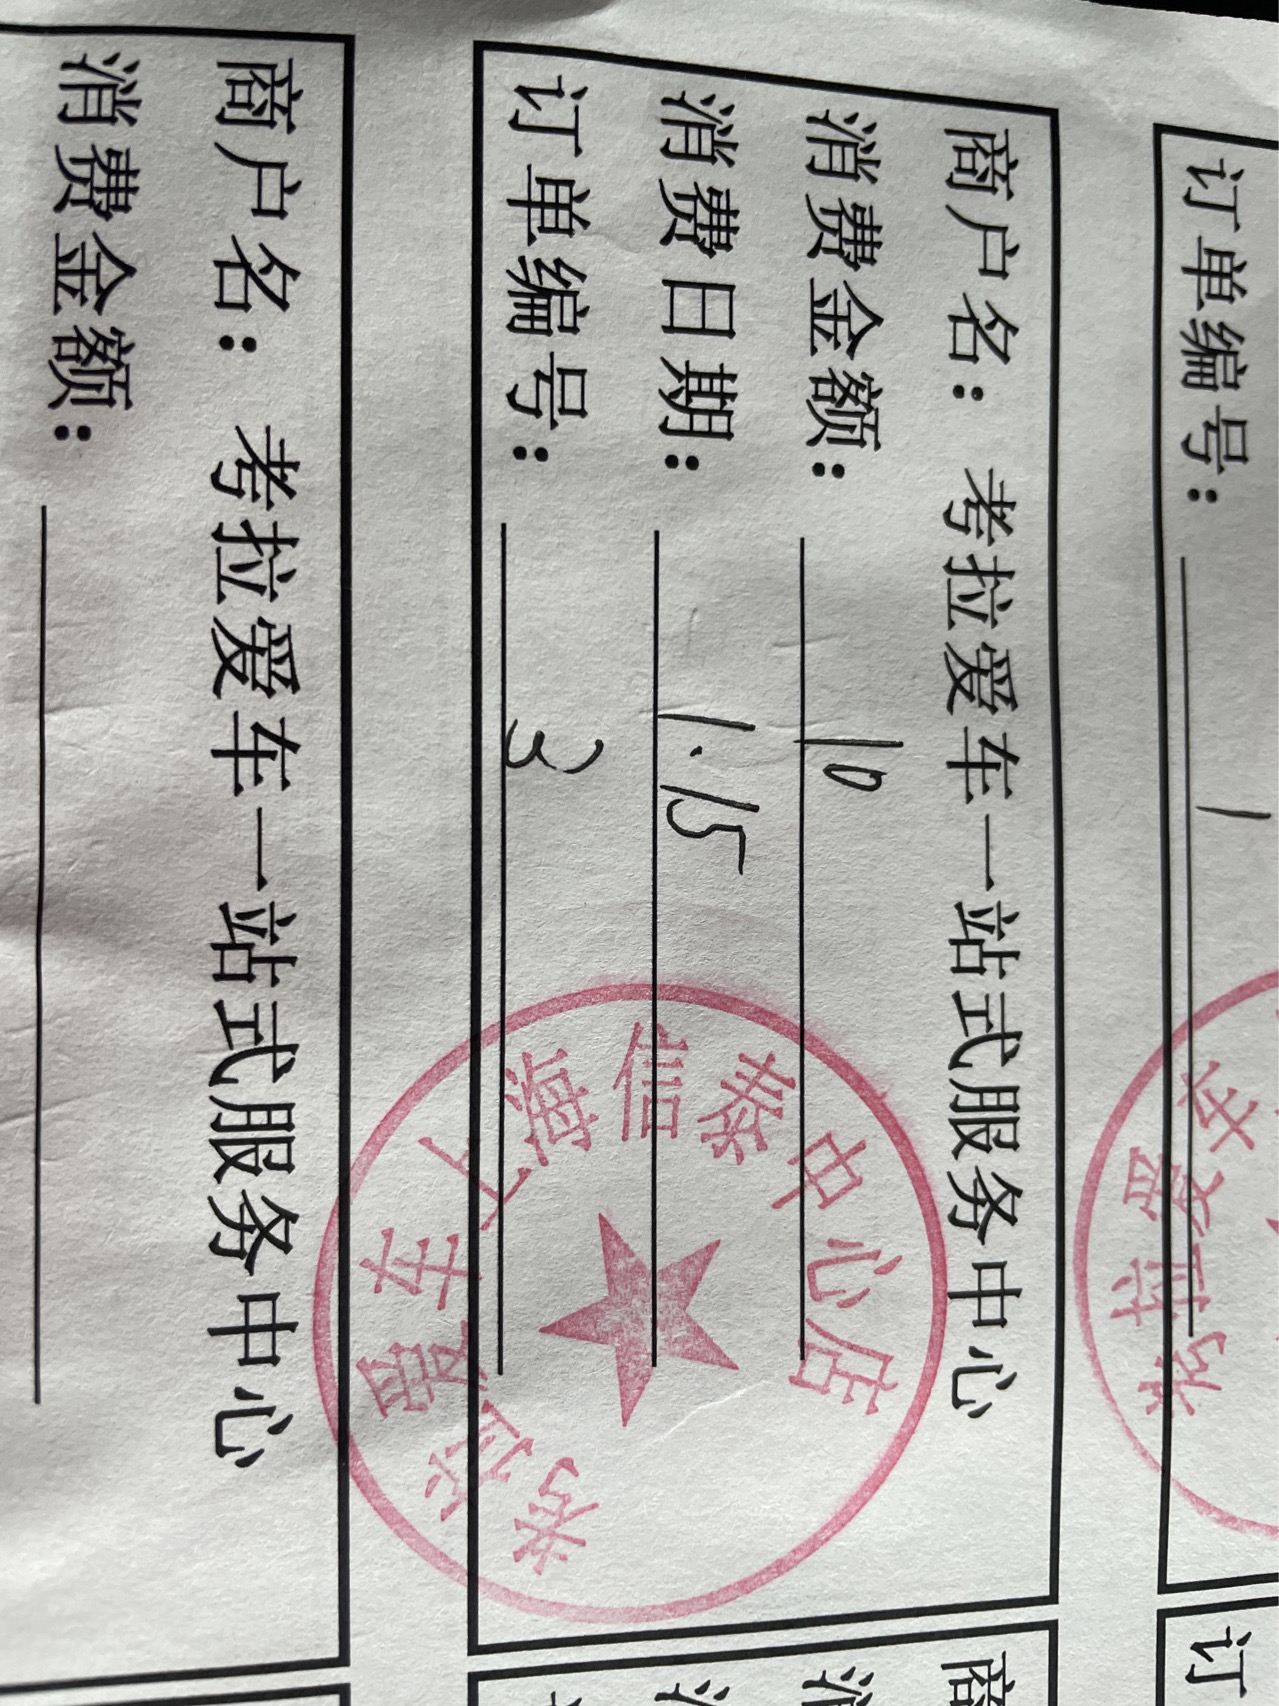 订单编号：1
考拉爱车
订
商户名：考拉爱车一站式服务中心
消费金额：10
消费日期：1.15
订单编号：3
考拉爱车上海信泰中心店
商
消
商户名：考拉爱车一站式服务中心
消费金额：